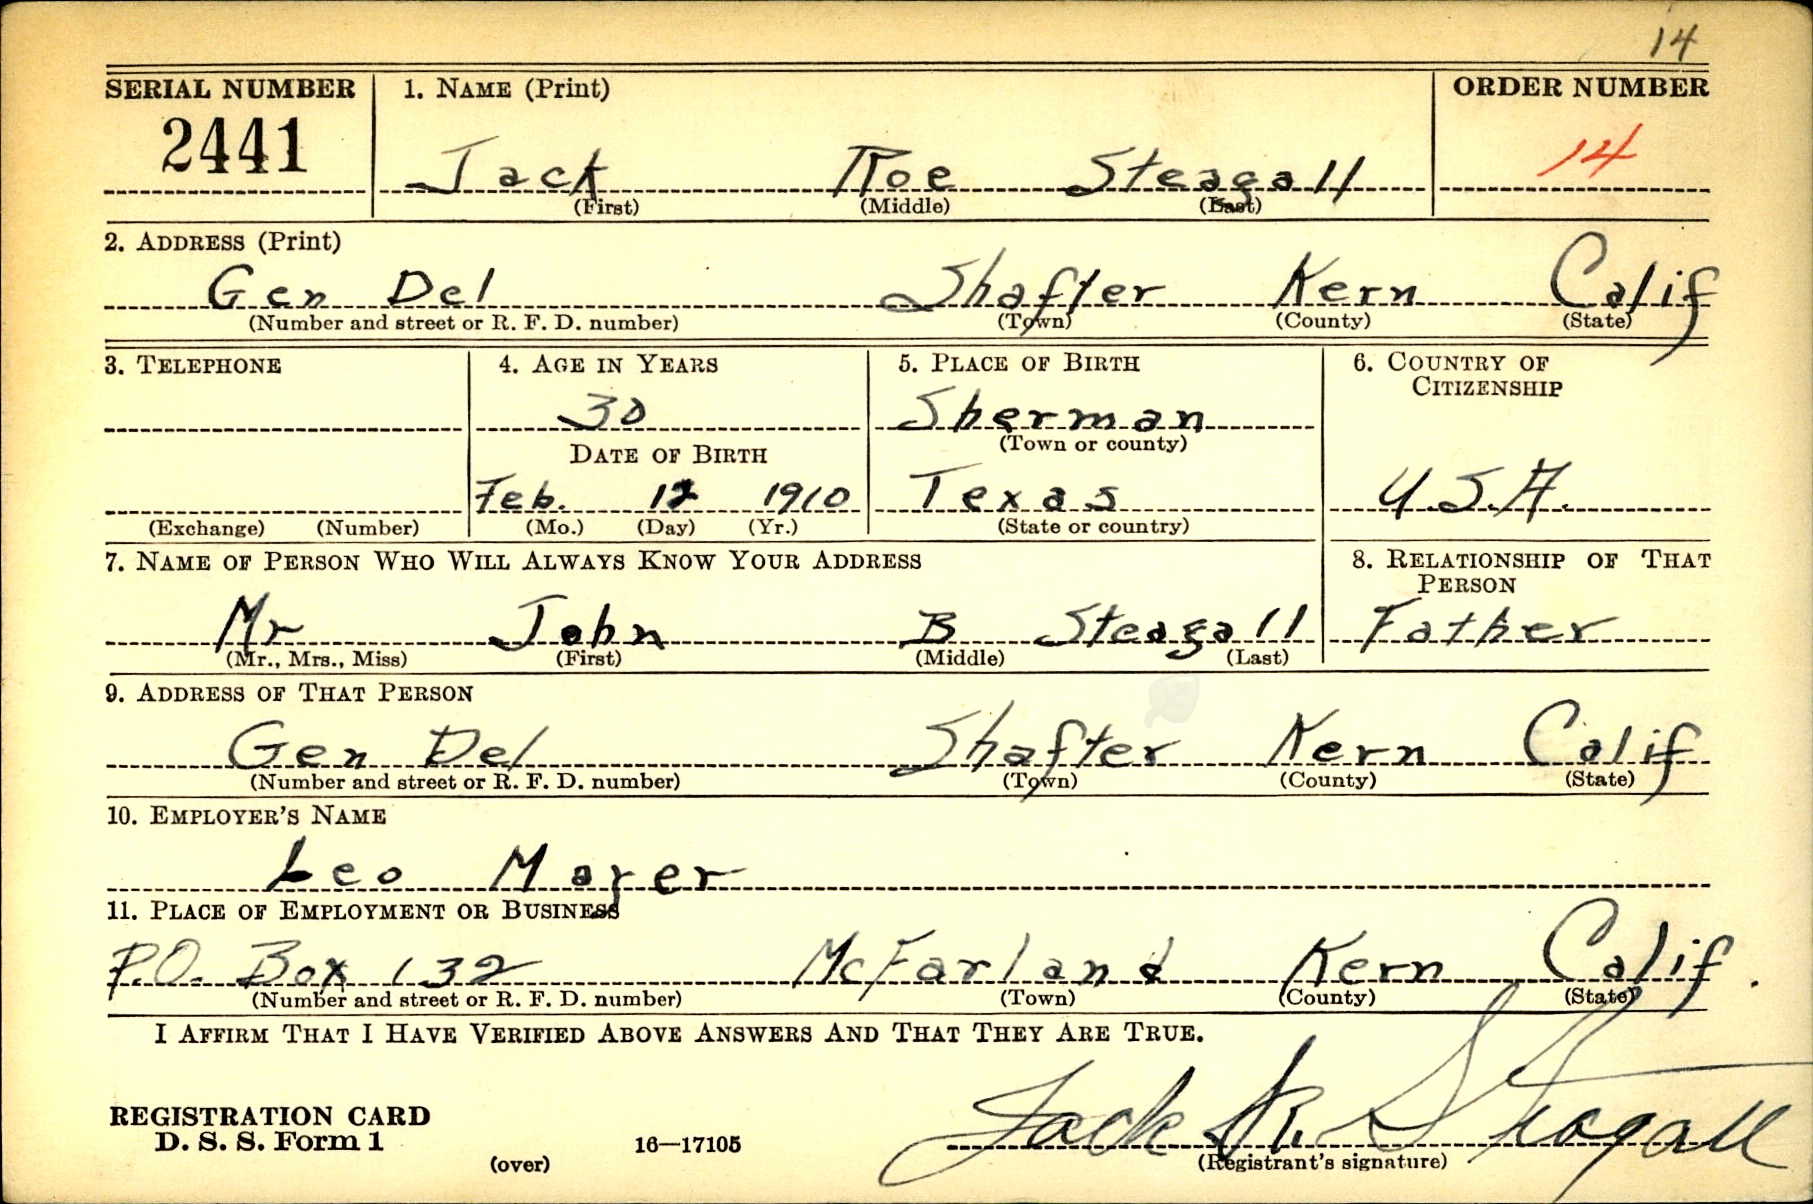 14
SERIAL NUMBER 1. NAME (Print) ORDER NUMBER
2441 Jack Roe Steagall 14
(First) (Middle) (Last)
2. ADDRESS (Print)
Gen Del Shafter Kern Calif
(Number and street or R. F. D. number) (Town) (County) (State)
3. TELEPHONE 4. AGE IN YEARS 5. PLACE OF BIRTH 6. COUNTRY OF
CITIZENSHIP
30 Sherman
DATE OF BIRTH (Town or county)
Feb. 12 1910 Texas U.S.A.
(Exchange) (Number) (Mo.) (Day) (Yr.) (State or country)
7. NAME OF PERSON WHO WILL ALWAYS KNOW YOUR ADDRESS 8. RELATIONSHIP OF THAT
PERSON
Mr John B Steagall Father
(Mr., Mrs., Miss) (First) (Middle) (Last)
9. ADDRESS OF THAT PERSON
Gen Del Shafter Kern Calif
(Number and street or R. F. D. number) (Town) (County) (State)
10. EMPLOYER'S NAME
Leo Mayer
11. PLACE OF EMPLOYMENT OR BUSINESS
P.O. Box 132 McFarland Kern Calif.
(Number and street or R. F. D. number) (Town) (County) (State)
I AFFIRM THAT I HAVE VERIFIED ABOVE ANSWERS AND THAT THEY ARE TRUE.
REGISTRATION CARD Jack R. Steagall
D. S. S. Form 1 16—17105
(over) (Registrant's signature)